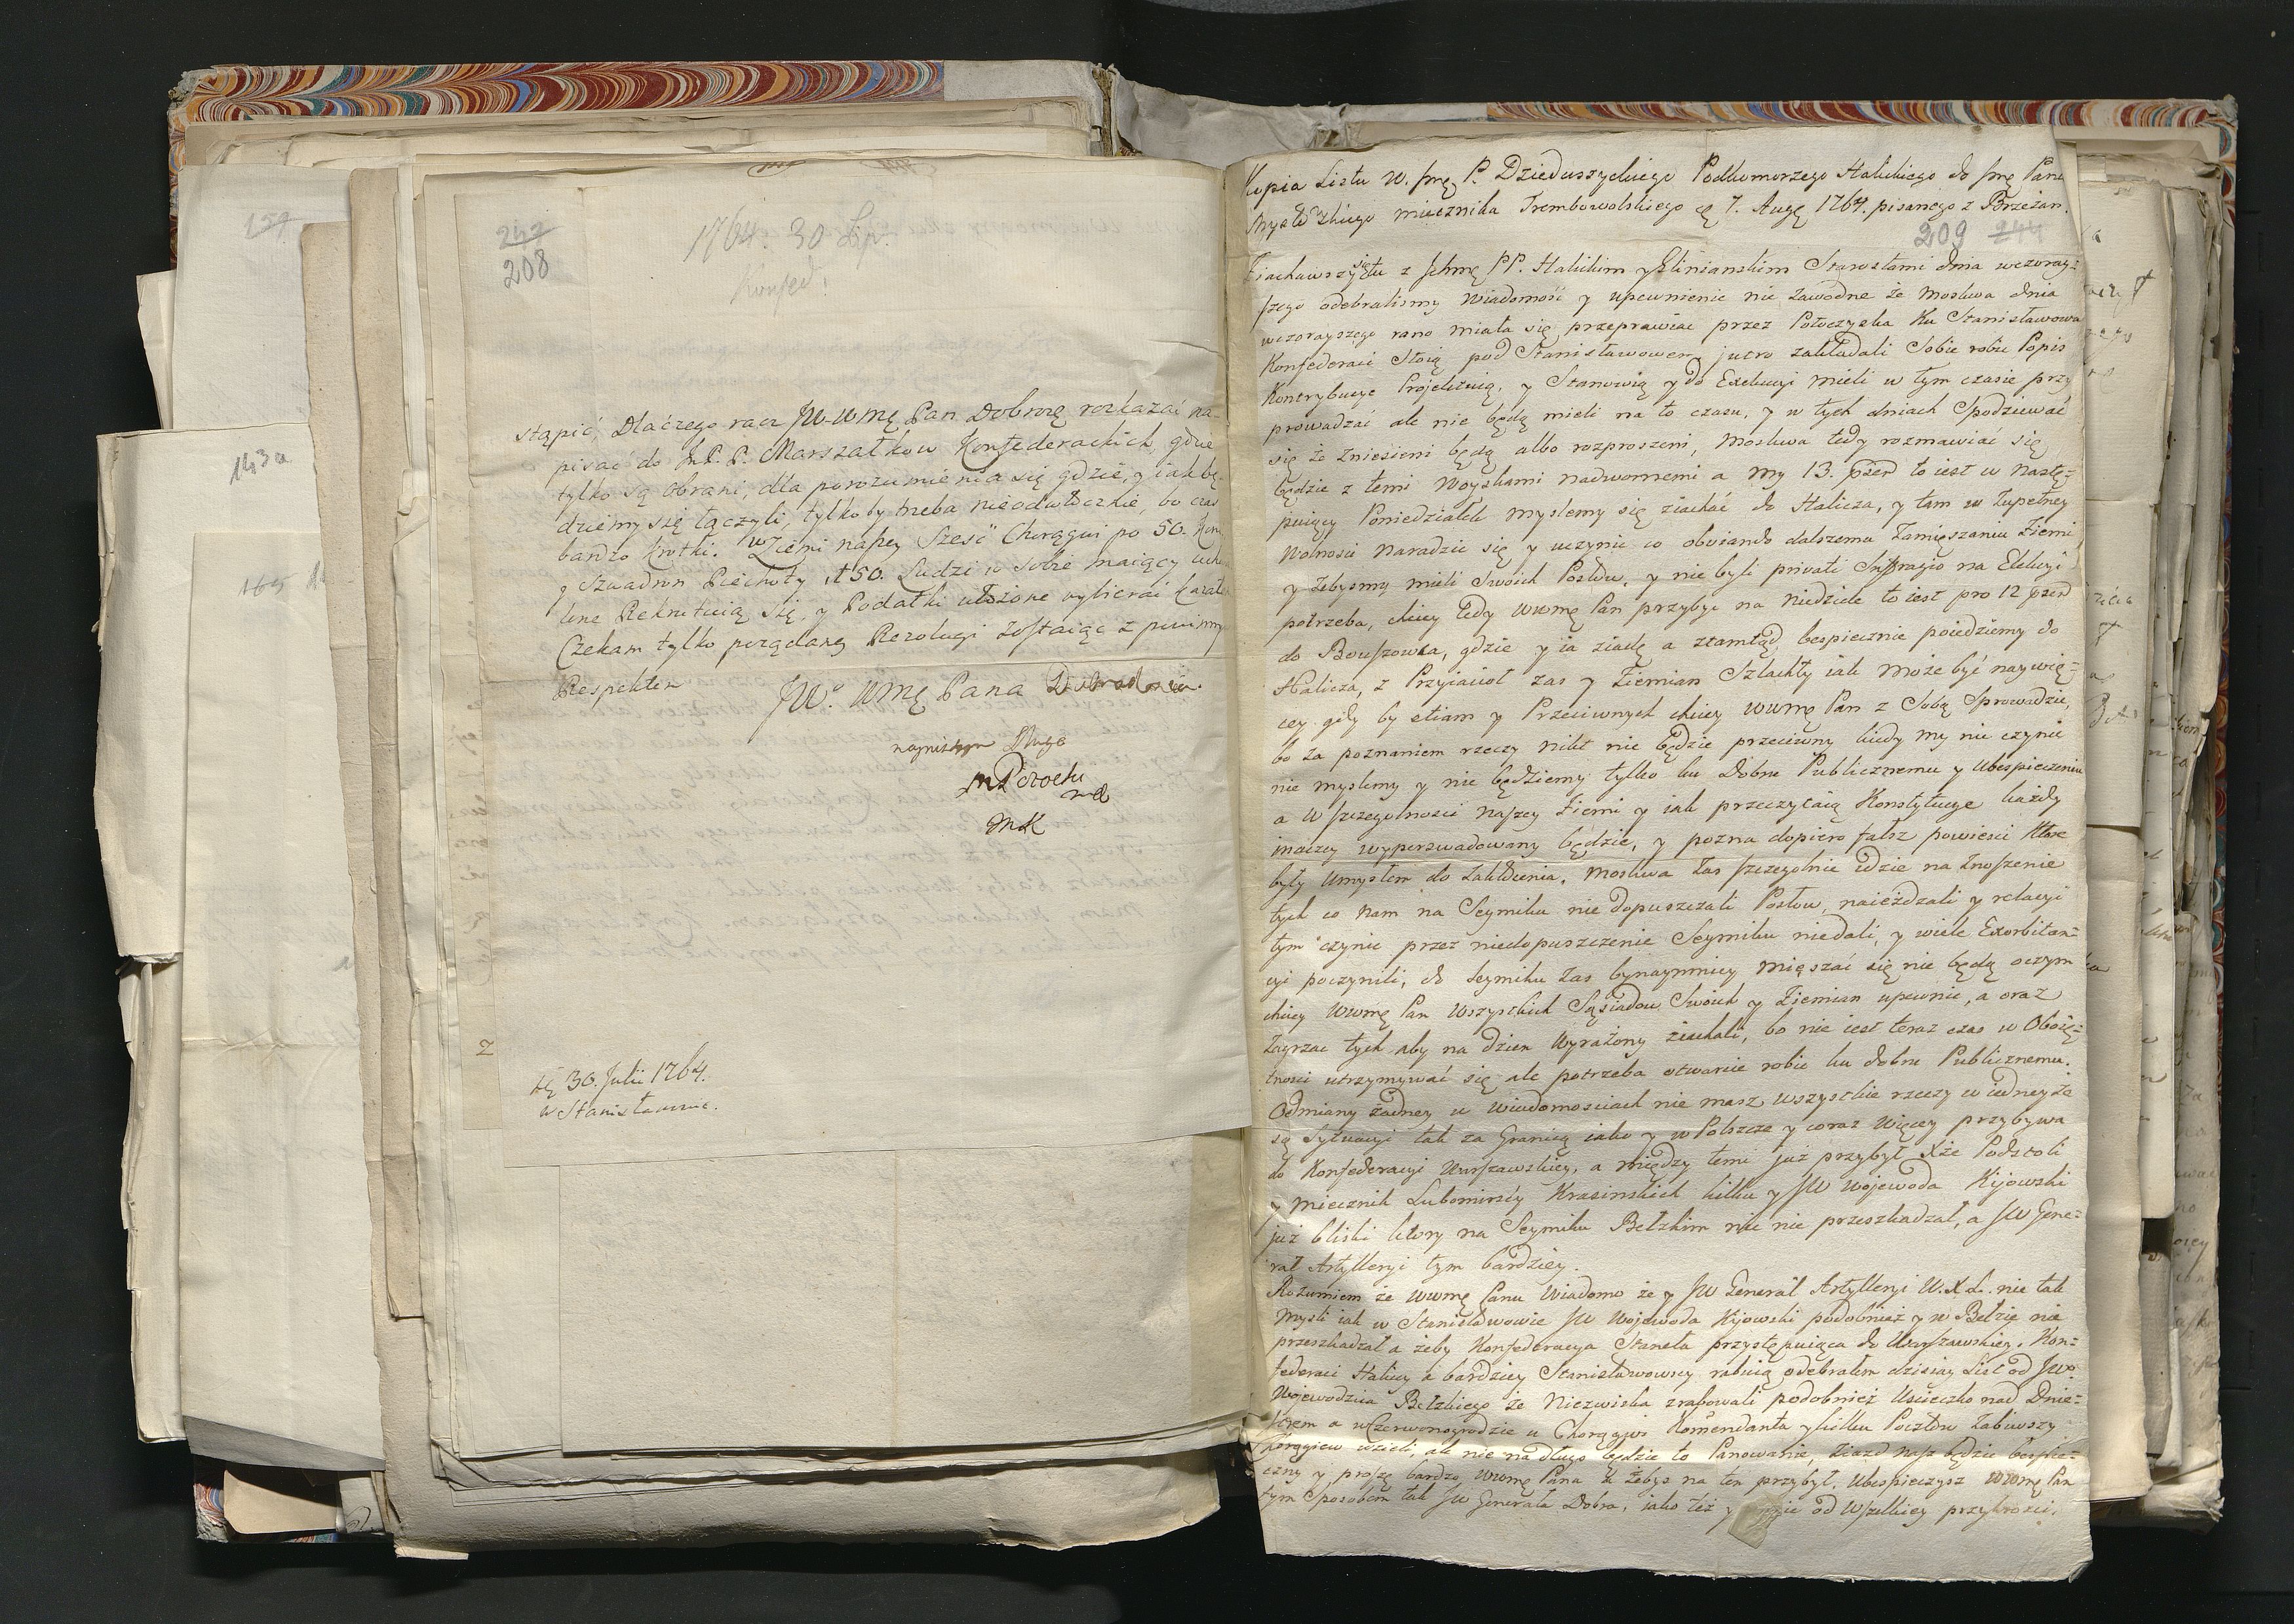 159
143a
165
242
208
1764. 30 Lip.
Konfed.
stąpić, Dlaczego racz JW WMę Pan Dobrozę rozkazać na-
pisać do M. P. P. Marszałkow Konfederackich, gdzie
tylko są obrani, dla porozumienia się gdzie, y iak bę-
dziemy się łączyli, tylko by treba nieodwłocznie, bo czas
bardzo krotki. W Ziemi naszey Sześć Chorągwi po 50. Koni
y Szwadron Piechoty 150. Ludzi w Sobie maiący
Rekrutuią się, y Podatki ułożone wybierać
Czekam tylko porządaney Rezolucyi zostaiąc z powinnym
Respektem
JW. WMę Pana Dobrodzieia.
nayniższym Sługą
MK
dę 30. Julii 1764.
w Stanisławowie.
2
Kopia Listu W. Jmę P. Dzieduszyckiego Podkomorzego Halickiego do Jmę Pana
miecznika Trembowolskiego dę 7. Augę 1764. pisanego z Brzeżan.
209 244
Ziachawszy się tu z Jchmę PP. Halickim y Glinianskim Starostami dnia wczoray-
szego odebralismy wiadomość y upewnienie nie zawodne że Moskwa dnia
wczorayszego rano miała się przeprawiac przez Potoczyska Ku Stanisławowu
Konfederaci Stoią pod Stanisławowem jutro zakładali Sobie robic Popis
Kontrybucye Projektuią, y Stanowią y do Exekucyi mieli w tym czasie przy
prowadzać ale nie będą mieli na to czasu, y w tych dniach Spodziewać
się że zniesieni będą albo rozproszeni, Moskwa tedy rozmawiac się
będzie z temi Woyskami nadwornemi a my 13. pżen to iest w nastę-
puiący Poniedziałek myslemy się ziachać do Halicza, y tam w zupełney
Wolnosci naradzic się y uczynic co obviando dalszemu Zamięszaniu Ziemi,
y żebysmy mieli Swoich Posłow, y nie byli privati Sufragio na Elekcyi
potrzeba, chciey tedy WWMę Pan przybyc na Niedziele to iest pro 12 pżen
do Bouszowca, gdzie y ia ziadę a ztamtąd bespiecznie poiedziemy do
Halicza, z Przyiacioł zas y Ziemian Szlachty iak może być naywię-
cey gdy by etiam y Przeciwnych chciey WWMę Pan z Sobą Sprowadzic,
bo za poznaniem rzeczy nikt nie będzie przeciwny kiedy my nic czynic
nie myslemy y nie będziemy tylko ku dobru Publicznemu y Ubespieczeniu
a w szczegolnosci naszey Ziemi y iak przeczytaią Konstytucye każdy
inaczey wyperswadowany będzie, y pozna dopiero fałsz powiesci Które
były Umysłem do zakłucenia. Moskwa zas szczegolnie idzie na znoszenie
tych co nam na Seymiku nie dopuszczali Posłow, naieżdzali y relacyi
tym czynic przez niedopuszczenie Seymiku niedali, y wiele Exorbitan-
cyi poczynili, do Seymiku zas bynaymniey mięszać się nie będą oczym
chciey WWMę Pan wszystkich Sąsiadow Swoich y Ziemian upewnic, a oraz
zagrzac tych aby na dzien wyrażony ziachali, bo nie iest teraz czas w Oboię-
tnosci utrzymywać się ale potrzeba otwarcie robic ku dobru Publicznemu.
Odmiany żadney w wiadomosciach nie masz wszystkie rzeczy w iedneyże
są Sytuacyi tak za Granicą iako y w Polszcze y coraz więcey przybywa
do Konfederacyi Warszawskiey, a między temi już przybył Xże Podstoli
y Miecznik Lubomirscy Krasinskich kilku y JW Wojewoda Kijowski
już bliski ktory na Seymiku Bełzkim nic nie przeszkadzał, a JW Gene-
rał Artylleryi tym bardziey.
Rozumiem że WWMę Panu wiadomo że y JW Generał Artylleryi W.X.L. nie tak
mysli iak w Stanisławowie JW Wojewoda Kijowski podobnież y w Bełzie nie
przeszkadzał a żeby Konfederacya Staneła przystępuiąca do Warszawskiey. Kon-
federaci Haliccy a bardziey Stanisławowscy rabuią odebrałem dzisiay List od JW
Wojewodzica Bełzkiego że Niezwiska zrabowali podobnież Uscieczko nad Dnie-
strem a w Czerwonogrodzie u Chorągwi Komendanta y kilku Pocztow zabiwszy
Chorągiew wzieli, ale nie na długo będzie to Panowanie, ziazd nasz będzie bespie-
czny y proszę bardzo WWMę Pana żebys na ten przybył. Ubespieczysz WWMę Pan
tym Sposobem tak JW Generała Dobra, iako też y od wszelkiey przykrosci.